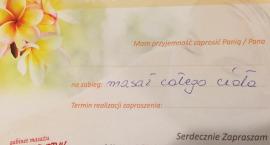 Mam przyjemność zaprosić Panią / Pana
na zabieg: masaż całego ciała
Termin realizacji zaproszenia:
gabinet masażu
Serdecznie Zapraszam